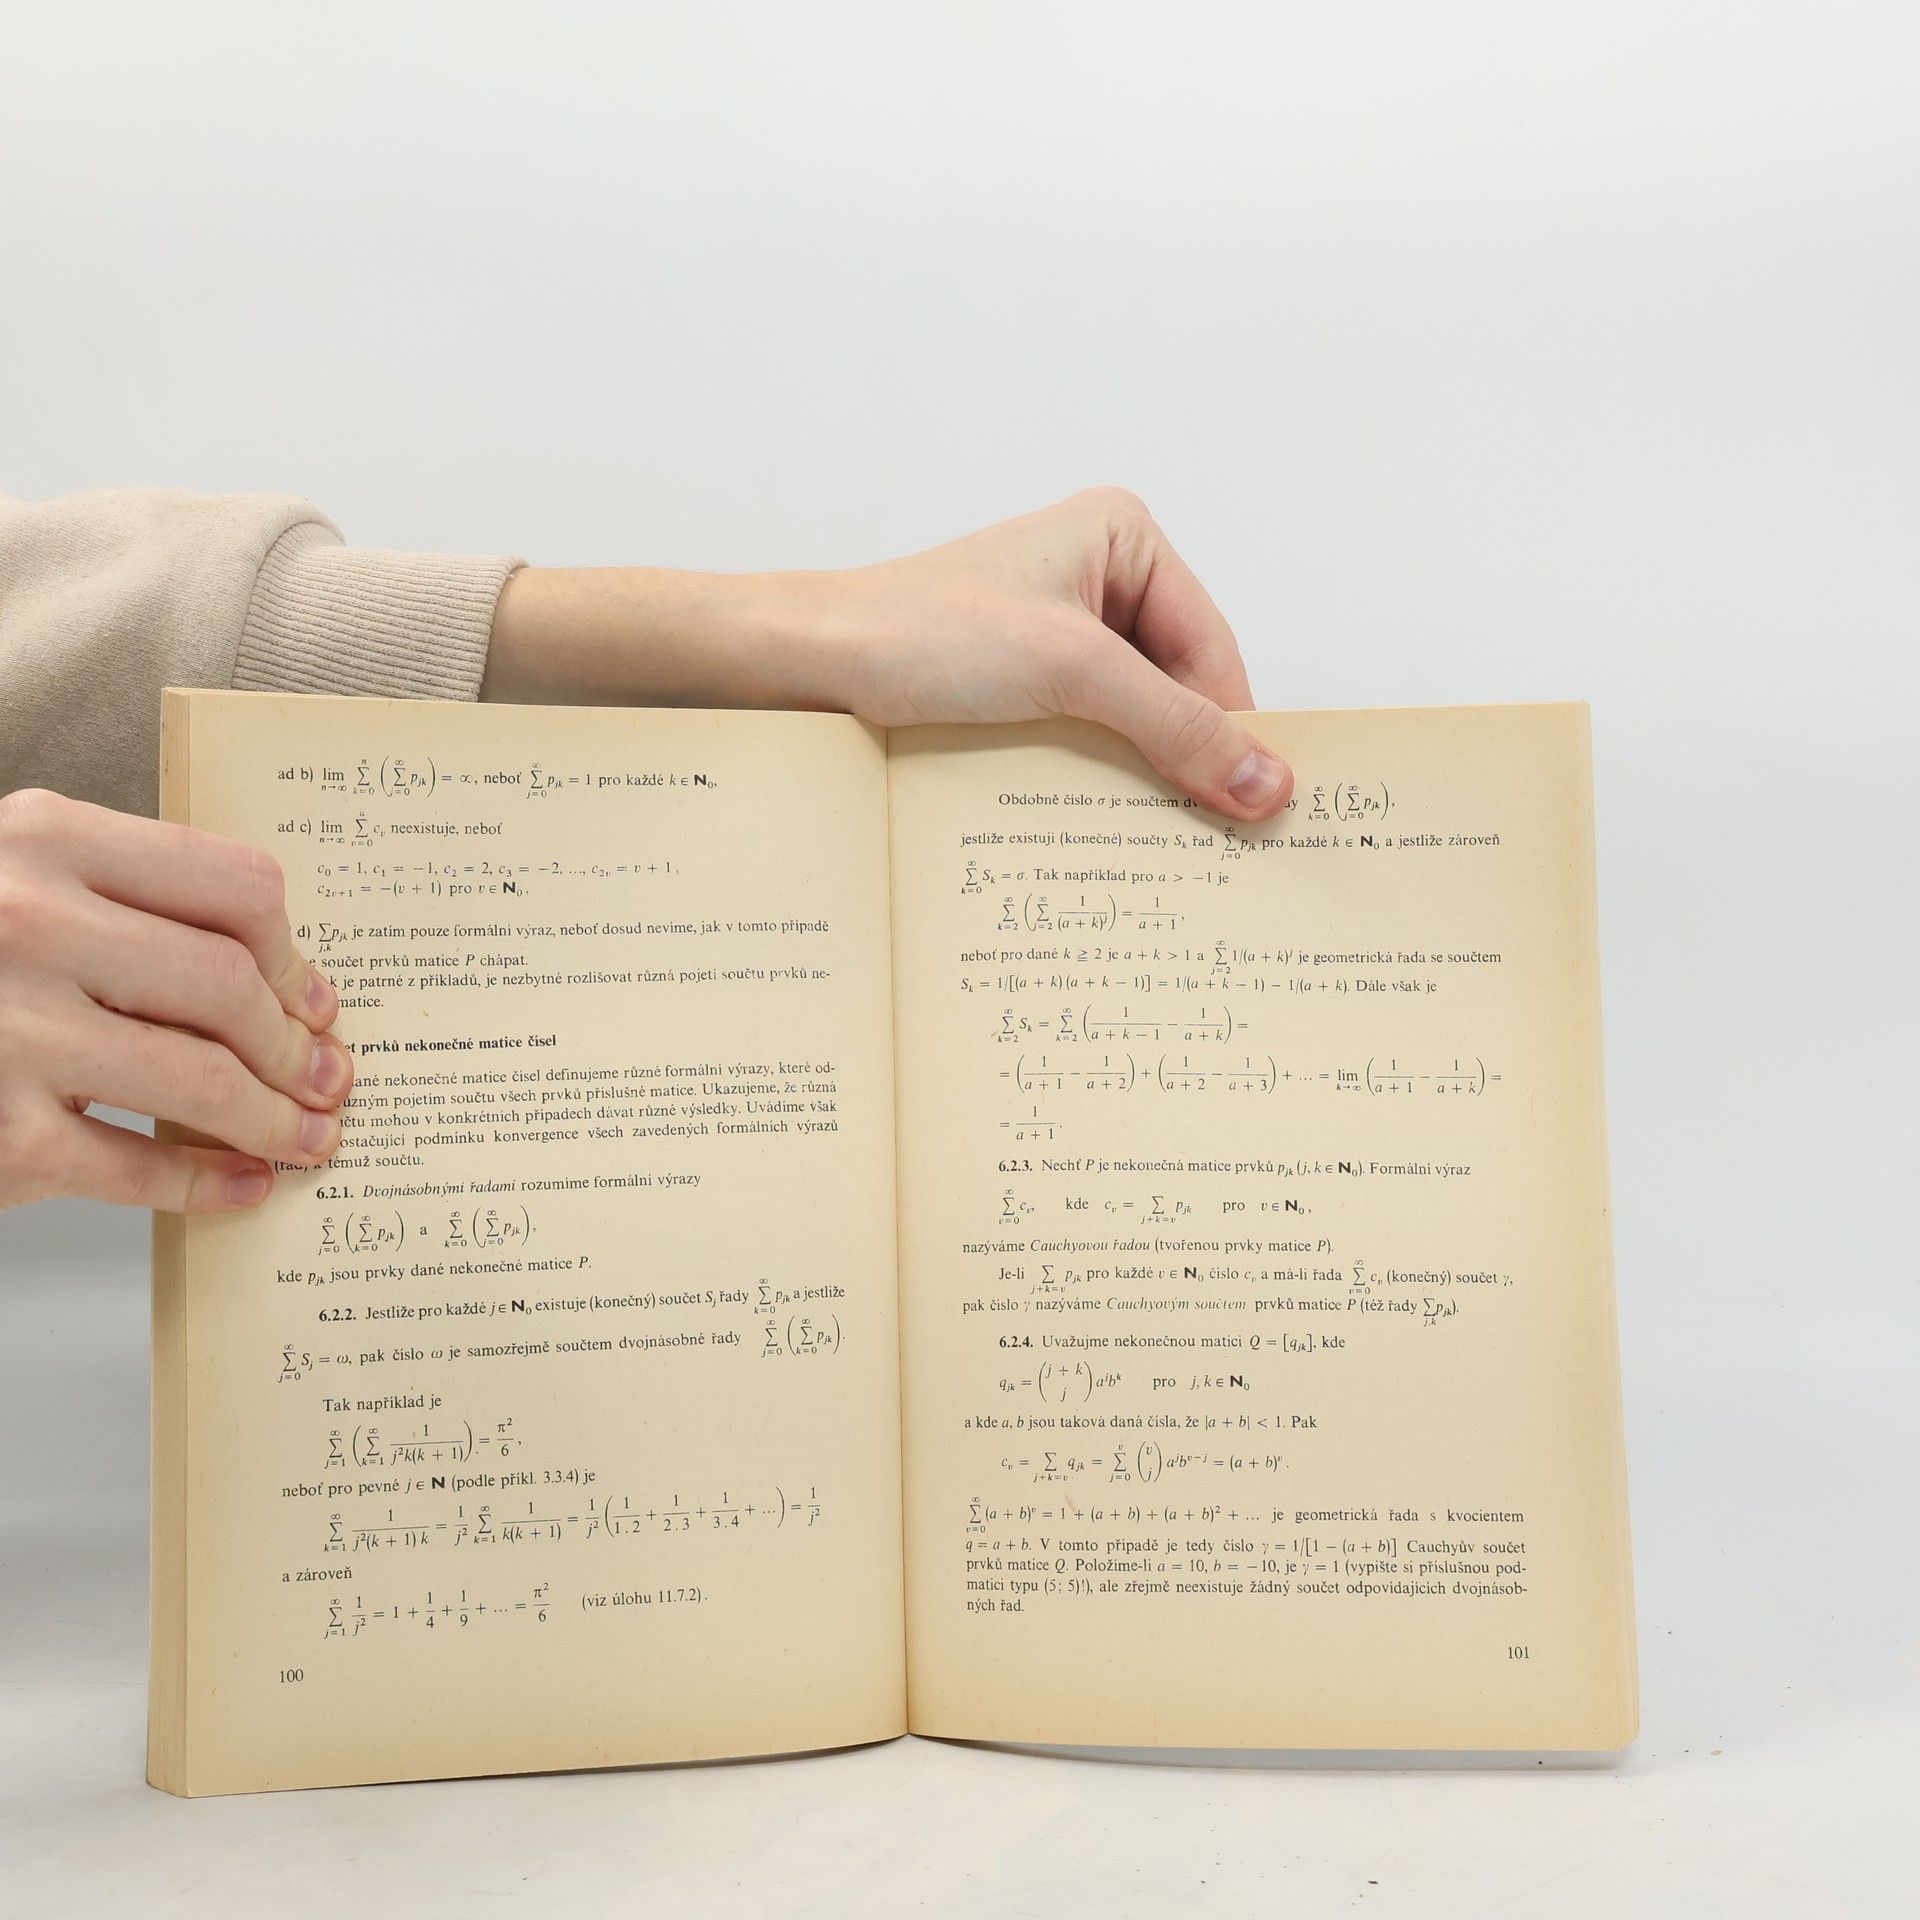 ad b) lim_{n→∞} ∑_{k=0}^{n} (∑_{j=0}^{∞} p_{jk}) = ∞, neboť ∑_{j=0}^{∞} p_{jk} = 1 pro každé k ∈ N₀,
ad c) lim_{n→∞} ∑_{v=0}^{n} c_v neexistuje, neboť
c₀ = 1, c₁ = −1, c₂ = 2, c₃ = −2, ..., c_{2v} = v + 1,
c_{2v+1} = −(v + 1) pro v ∈ N₀,
d) ∑_{j,k} p_{jk} je zatím pouze formální výraz, neboť dosud nevíme, jak v tomto případě
součet prvků matice P chápat.
k je patrné z příkladů, je nezbytné rozlišovat různá pojetí součtu prvků ne-
matice.
et prvků nekonečné matice čísel
ané nekonečné matice čísel definujeme různé formální výrazy, které od-
ůzným pojetím součtu všech prvků příslušné matice. Ukazujeme, že různá
učtu mohou v konkrétních případech dávat různé výsledky. Uvádíme však
ostačující podmínku konvergence všech zavedených formálních výrazů
témuž součtu.
6.2.1. Dvojnásobnými řadami rozumíme formální výrazy
∑_{j=0}^{∞} (∑_{k=0}^{∞} p_{jk}) a ∑_{k=0}^{∞} (∑_{j=0}^{∞} p_{jk}),
kde p_{jk} jsou prvky dané nekonečné matice P.
6.2.2. Jestliže pro každé j ∈ N₀ existuje (konečný) součet S_j řady ∑_{k=0}^{∞} p_{jk} a jestliže
∑_{j=0}^{∞} S_j = ω, pak číslo ω je samozřejmě součtem dvojnásobné řady ∑_{j=0}^{∞} (∑_{k=0}^{∞} p_{jk}).
Tak například je
∑_{j=1}^{∞} (∑_{k=1}^{∞} 1/(j²k(k + 1))) = π²/6,
neboť pro pevné j ∈ N (podle příkl. 3.3.4) je
∑_{k=1}^{∞} 1/(j²(k + 1) k) = 1/j² ∑_{k=1}^{∞} 1/(k(k + 1)) = 1/j² (1/(1.2) + 1/(2.3) + 1/(3.4) + ...) = 1/j²
a zároveň
∑_{j=1}^{∞} 1/j² = 1 + 1/4 + 1/9 + ... = π²/6 (viz úlohu 11.7.2).
100
Obdobně číslo σ je součtem ∑_{k=0}^{∞} (∑_{j=0}^{∞} p_{jk}),
jestliže existují (konečné) součty S_k řad ∑_{j=0}^{∞} p_{jk} pro každé k ∈ N₀ a jestliže zároveň
∑_{k=0}^{∞} S_k = σ. Tak například pro a > −1 je
∑_{k=2}^{∞} (∑_{j=2}^{∞} 1/(a + k)^j) = 1/(a + 1),
neboť pro dané k ≧ 2 je a + k > 1 a ∑_{j=2}^{∞} 1/(a + k)^j je geometrická řada se součtem
S_k = 1/[(a + k)(a + k − 1)] = 1/(a + k − 1) − 1/(a + k). Dále však je
∑_{k=2}^{∞} S_k = ∑_{k=2}^{∞} (1/(a + k − 1) − 1/(a + k)) =
= (1/(a + 1) − 1/(a + 2)) + (1/(a + 2) − 1/(a + 3)) + ... = lim_{k→∞} (1/(a + 1) − 1/(a + k)) =
= 1/(a + 1).
6.2.3. Nechť P je nekonečná matice prvků p_{jk} (j, k ∈ N₀). Formální výraz
∑_{v=0}^{∞} c_v, kde c_v = ∑_{j+k=v} p_{jk} pro v ∈ N₀,
nazýváme Cauchyovou řadou (tvořenou prvky matice P).
Je-li ∑_{j+k=v} p_{jk} pro každé v ∈ N₀ číslo c_v a má-li řada ∑_{v=0}^{∞} c_v (konečný) součet γ,
pak číslo γ nazýváme Cauchyovým součtem prvků matice P (též řady ∑_{j,k} p_{jk}).
6.2.4. Uvažujme nekonečnou matici Q = [q_{jk}], kde
q_{jk} = (j + k nad j) a^j b^k pro j, k ∈ N₀
a kde a, b jsou taková daná čísla, že |a + b| < 1. Pak
c_v = ∑_{j+k=v} q_{jk} = ∑_{j=0}^{v} (v nad j) a^j b^{v−j} = (a + b)^v.
∑_{v=0}^{∞} (a + b)^v = 1 + (a + b) + (a + b)² + ... je geometrická řada s kvocientem
q = a + b. V tomto případě je tedy číslo γ = 1/[1 − (a + b)] Cauchyův součet
prvků matice Q. Položíme-li a = 10, b = −10, je γ = 1 (vypište si příslušnou pod-
matici typu (5; 5)!), ale zřejmě neexistuje žádný součet odpovídajících dvojnásob-
ných řad.
101